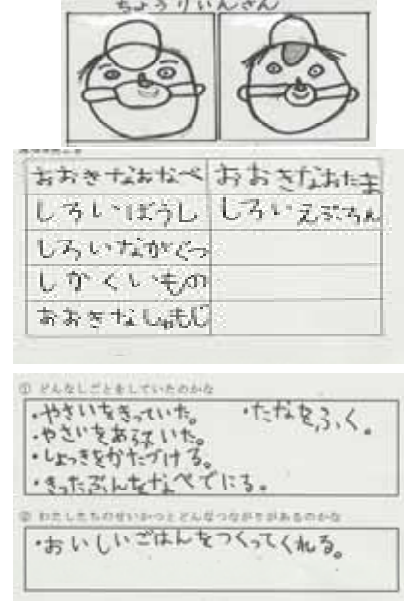 ちょうりいんさん
おおきなおなべ おおきなおたま
しろいぼうし しろいえぷろん
しろいながぐつ
しかくいもの
おおきなしゃもじ
① どんなしごとをしていたのかな
・やさいをきっていた。 ・たなをふく。
・やさいをあらいいた。
・しょっきをかたづける。
・きったぶんをなべでにる。
② わたしたちのせいかつとどんなつながりがあるのかな
・おいしいごはんをつくってくれる。